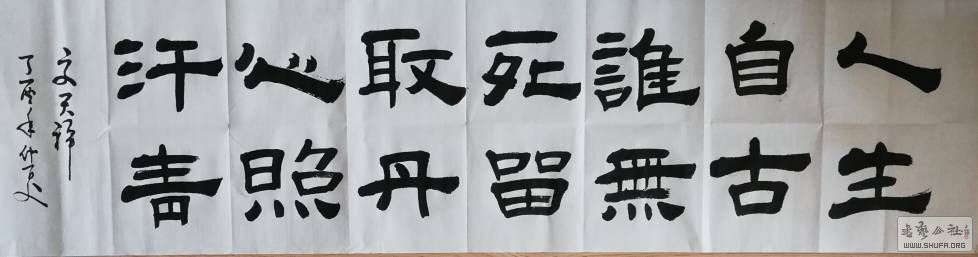 人生
自古
誰無
死留
取丹
心照
汗青
文天祥
丁酉年仲夏
书艺公社
WWW.SHUFA.ORG